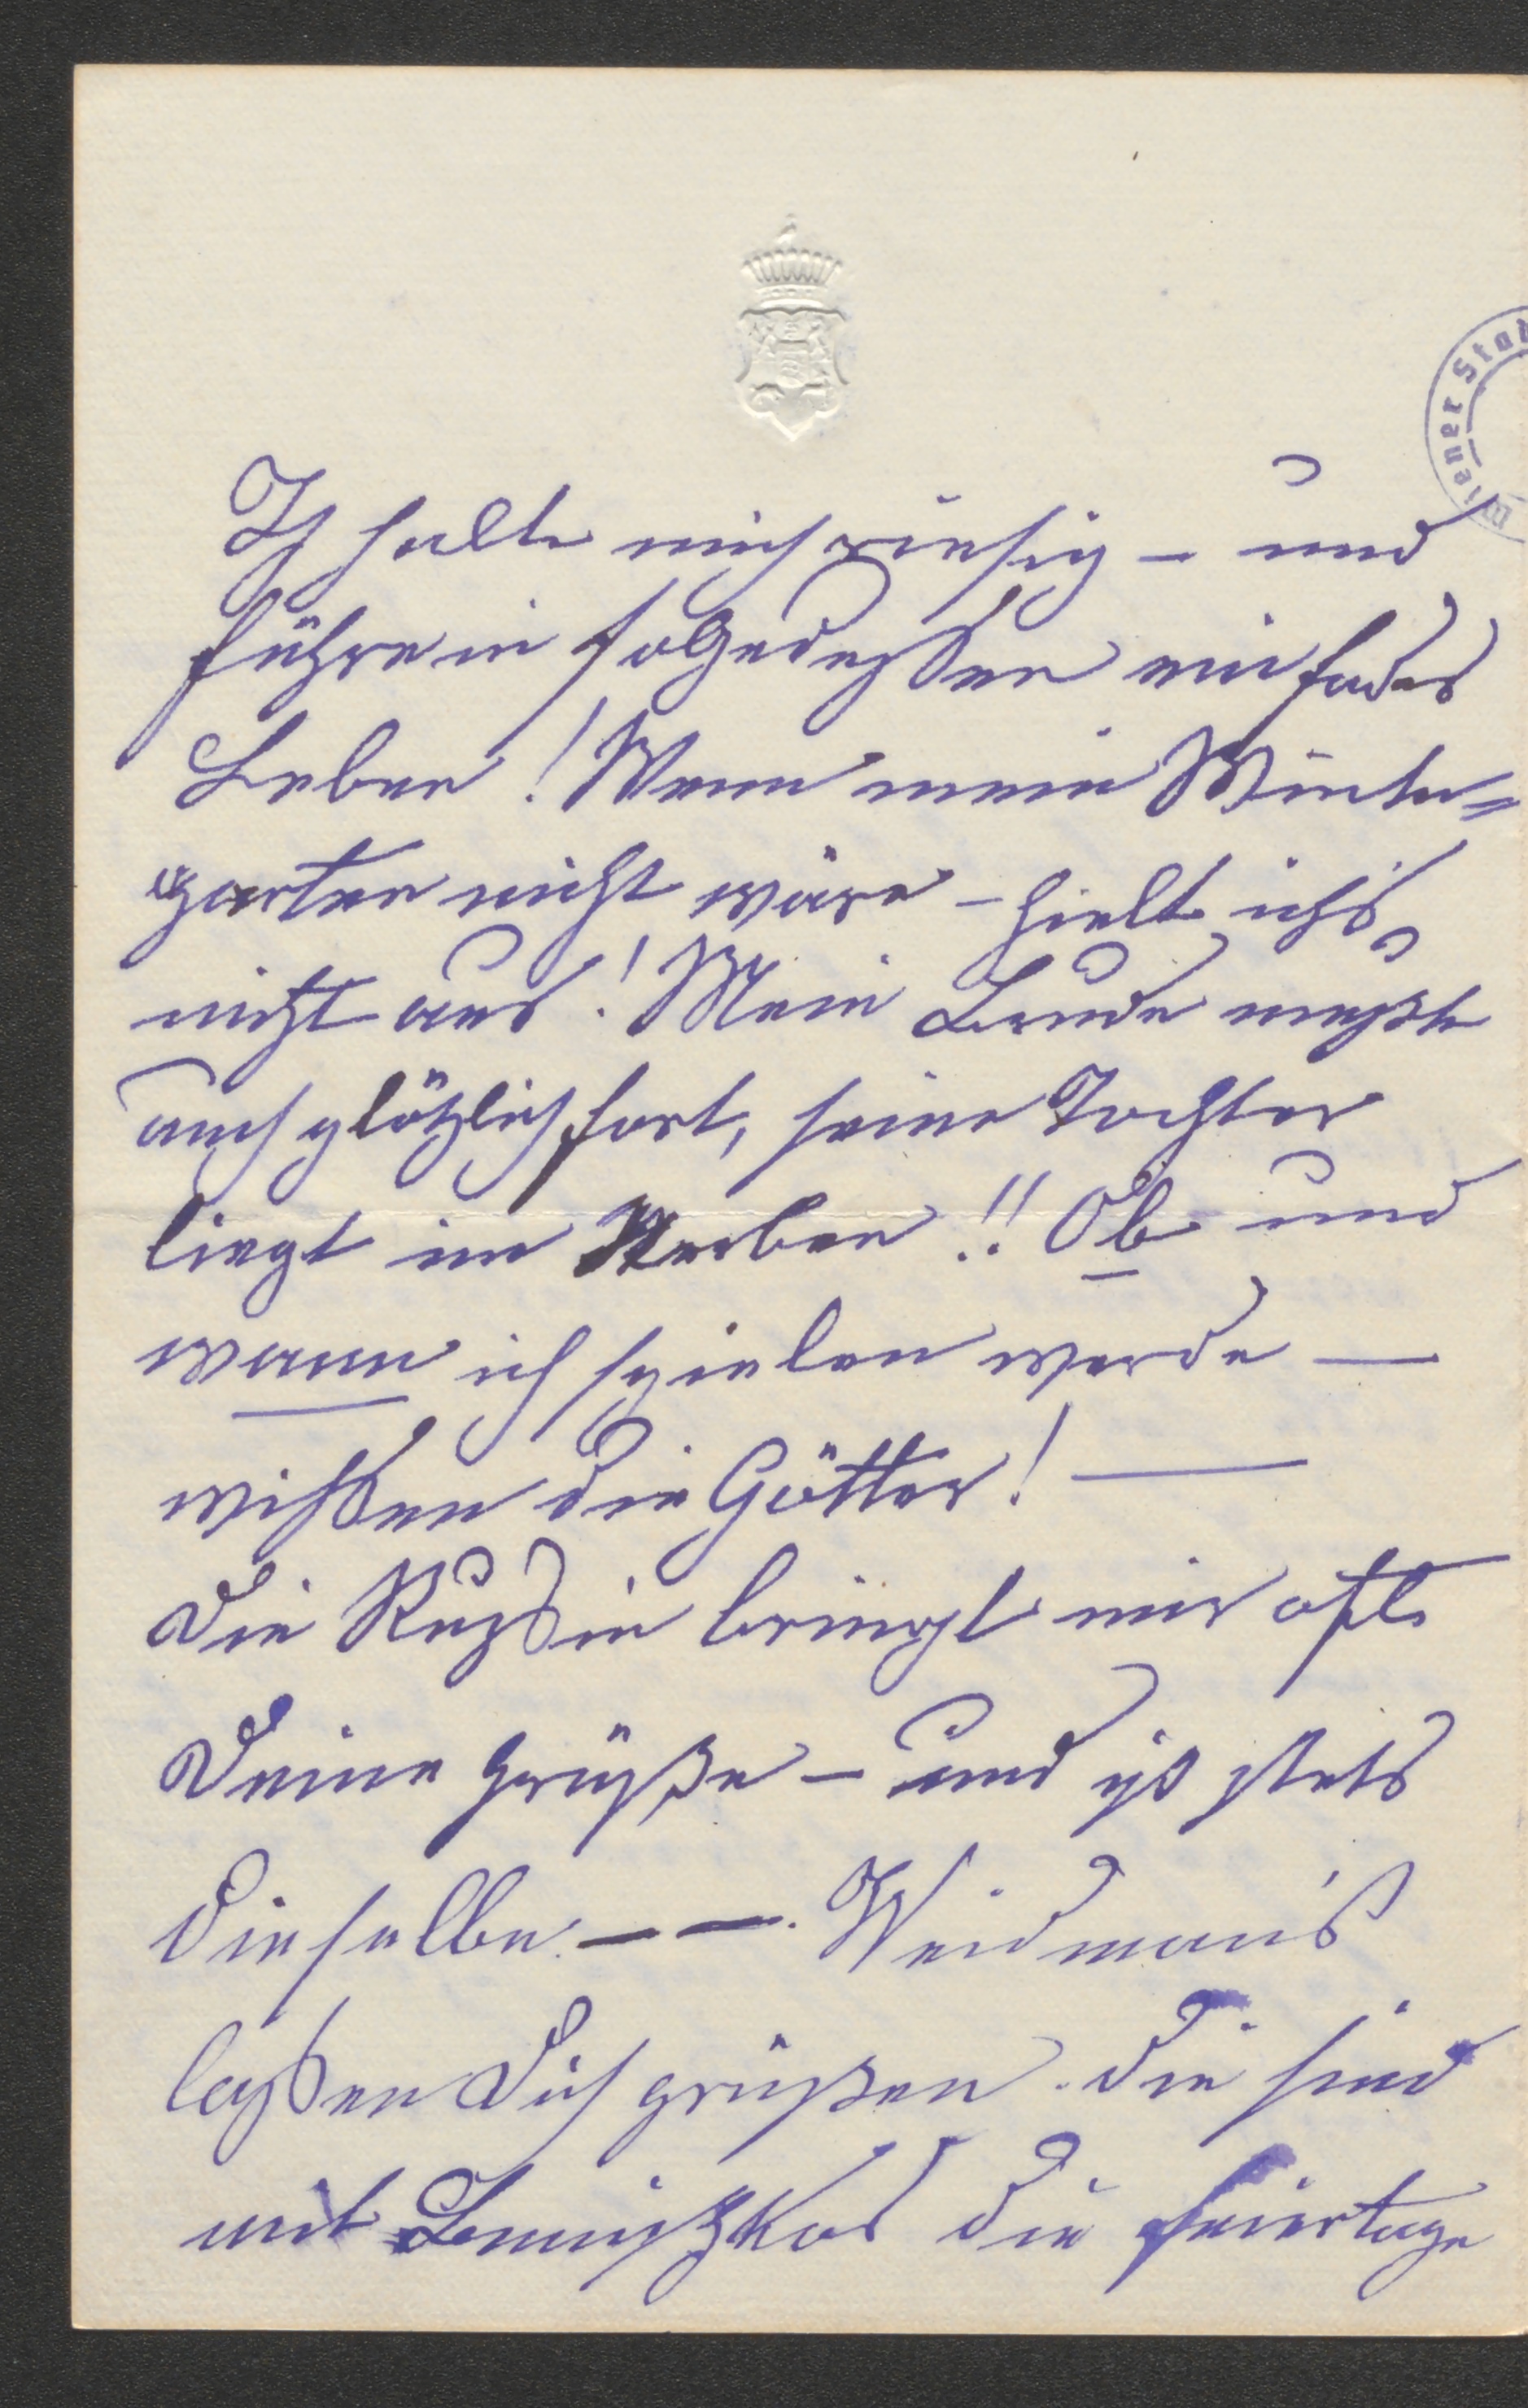 Wiener Sta
Ich halte mich ruhig – und
führe in folgedeßen ein fades
Leben! Wenn mein Winter=
garten nicht wäre – hielt ich's
nicht aus! Mein muß
auch plötzlich fort, seine Tochter
liegt im Sterben!! Ob und
wann ich spielen werde —
wißen die Götter! —
Die Rußin bringt mir oft
Deine Grüße – und ist stets
dieselbe. – –. Weidman's
laßen Dich grüßen. Die sind
mit die Feiertage